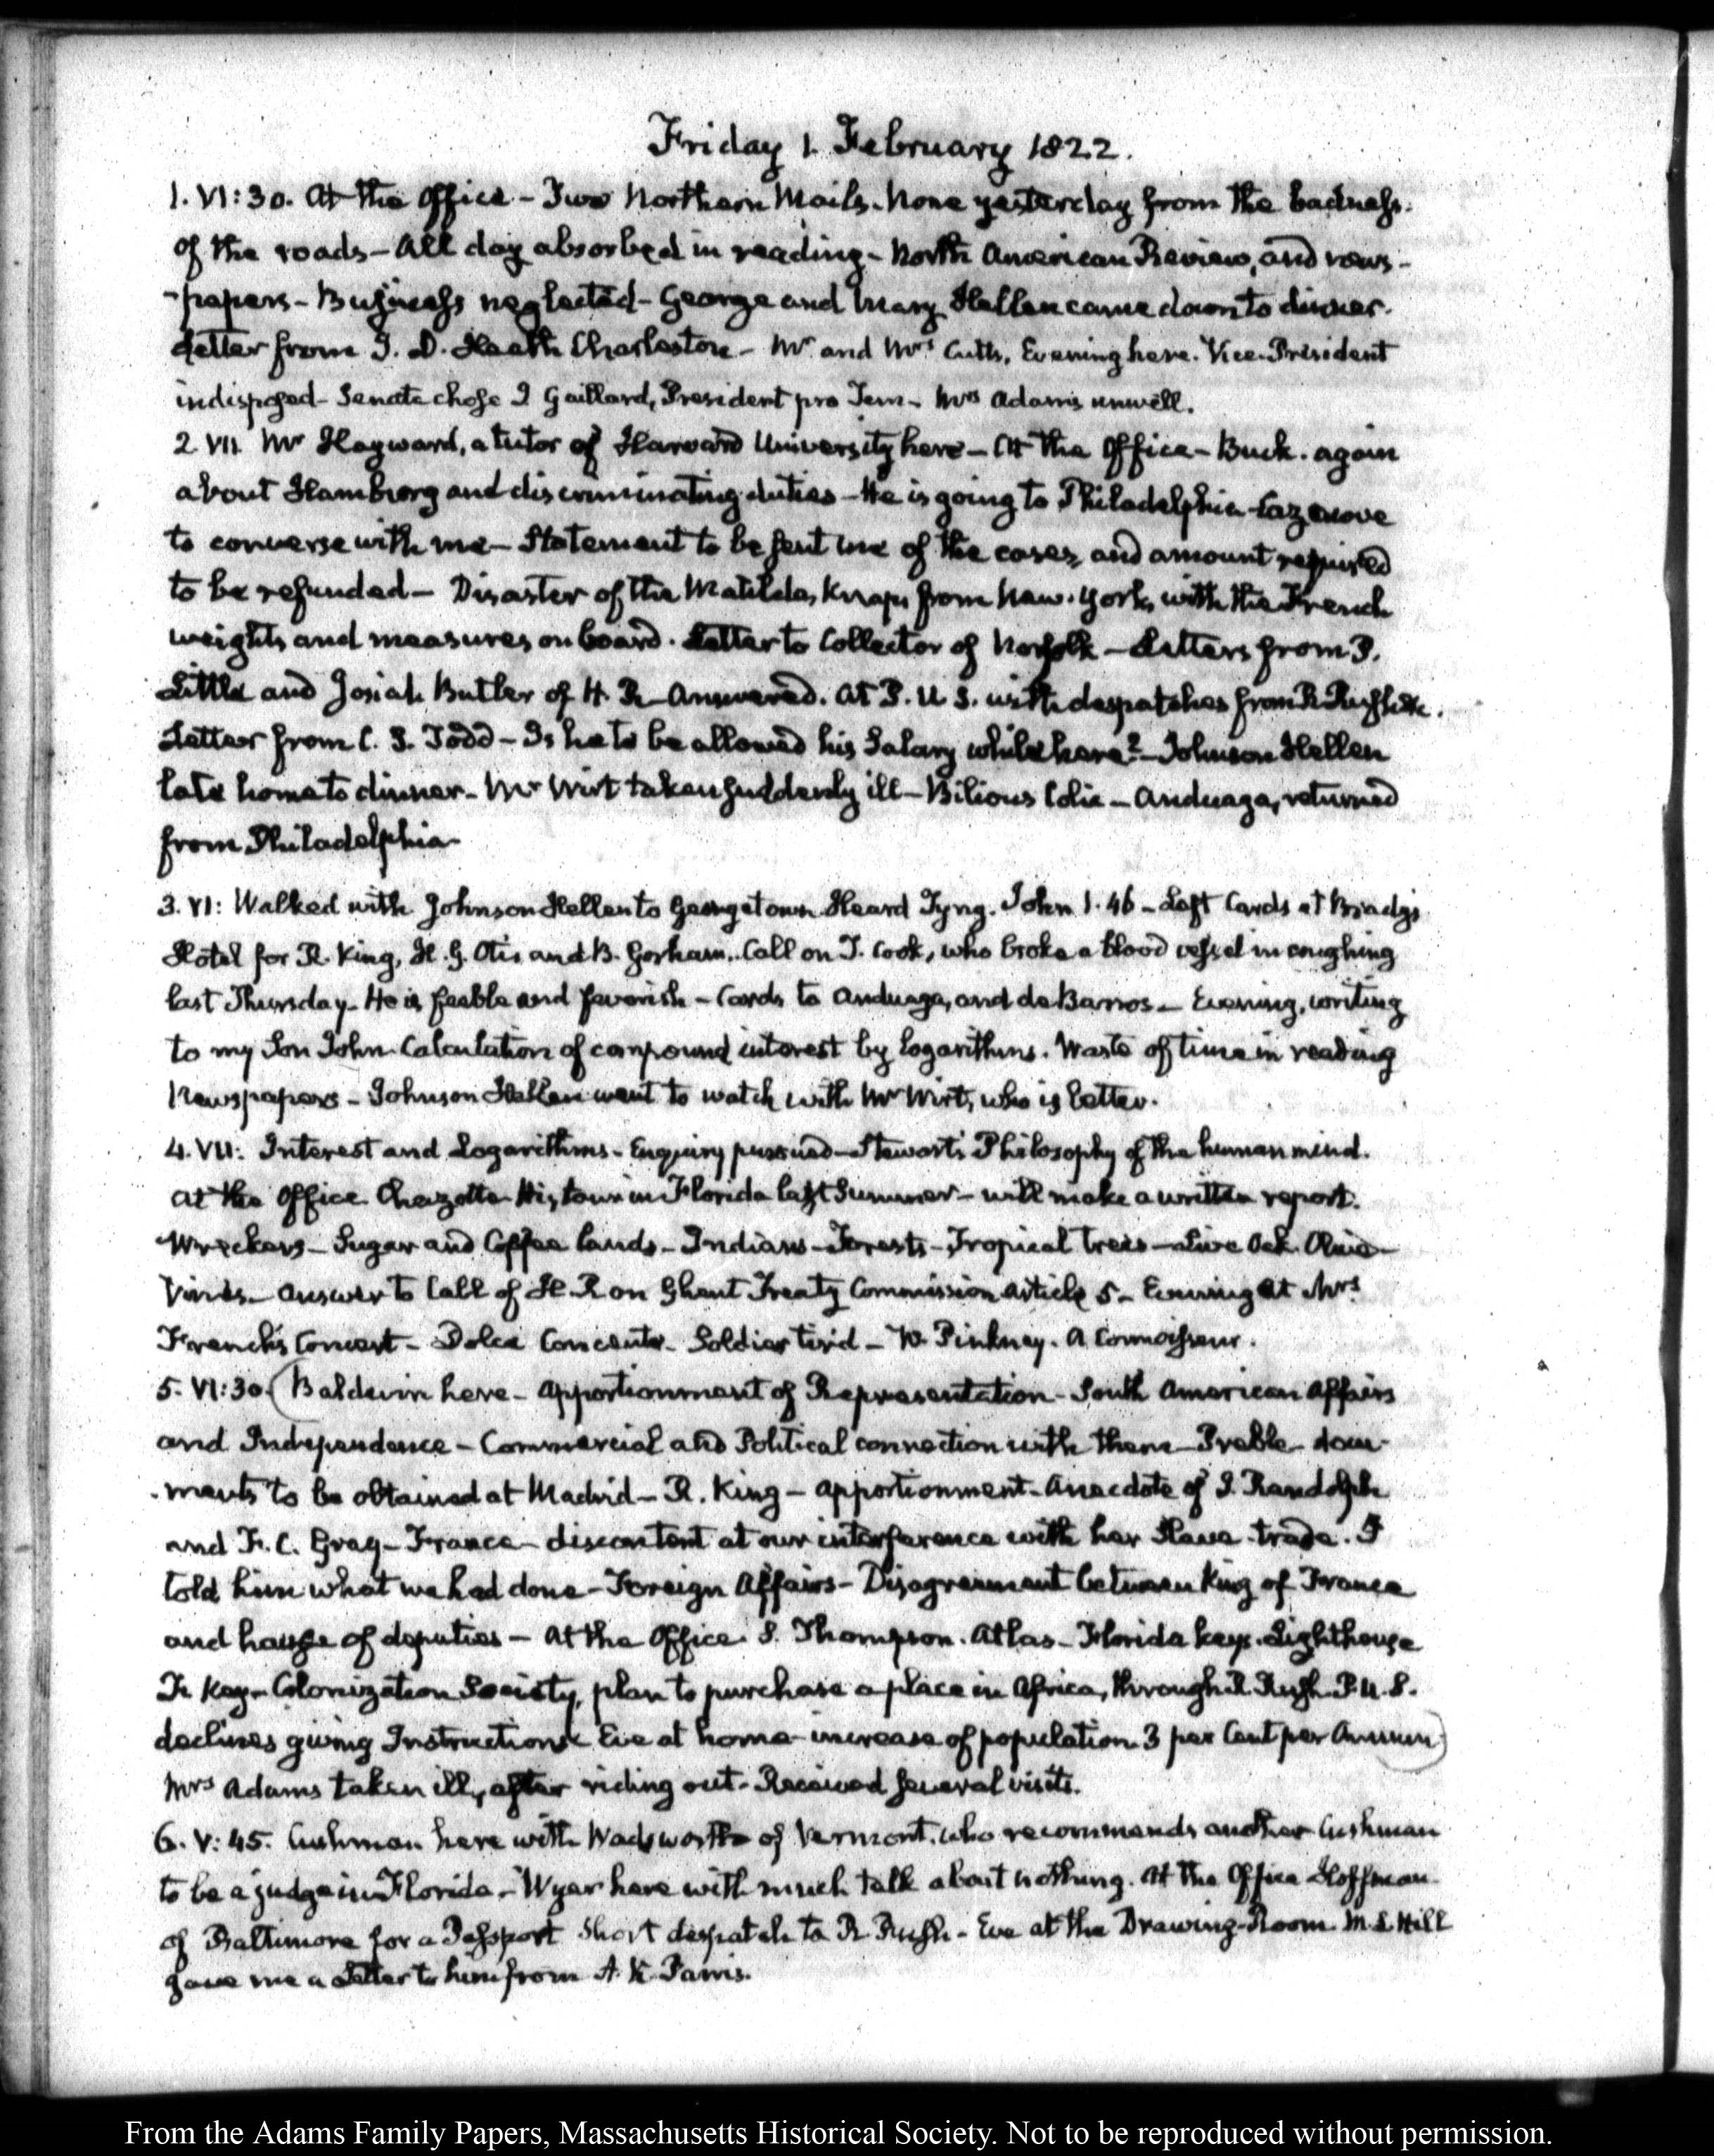 Friday 1. February 1822.
1. VI:30. At the Office - Two Northern Mails. None yesterday from the badness
of the roads - All day absorbed in reading - North American Review, and news-
-papers - Business neglected - George and Mary Hellen came down to dinner.
Letter from J. D. Heath Charleston - Mr and Mrs Cutts, Evening here. Vice-President
indisposed - Senate chose J Gaillard, President pro Tem - Mrs Adams unwell.
2. VII Mr Hayward, a tutor of Harvard University here - At the Office - Buck. again
about Hamburg and discriminating duties - He is going to Philadelphia - Cazenove
to converse with me - Statement to be sent me of the cases, and amount required
to be refunded - Disaster of the Matilda, Knapp from New-York, with the French
weights and measures on board. Letter to Collector of Norfolk - Letters from P.
Little and Josiah Butler of H. R - Answered. At P. U S. with despatches from R Rush &c.
Letter from C. S. Todd - Is he to be allowed his Salary while here? - Johnson Hellen
late home to dinner - Mr Wirt taken suddenly ill - Bilious Colic - Anduaga, returned
from Philadelphia -
3. VI: Walked with Johnson Hellen to Georgetown. Heard Tyng. John 1. 46 - Left Cards at Brady's
Hotel for R. King, H. G. Otis and B. Gorham. Call on J. Cook, who broke a blood vessel in coughing
last Thursday - He is feeble and feverish - Cards to Anduaga, and de Barros - Evening, writing
to my Son John. Calculation of compound interest by logarithms. Waste of time in reading
Newspapers - Johnson Hellen went to watch with Mr Wirt, who is better.
4. VII: Interest and Logarithms - Enquiry pursued - Stewart's Philosophy of the human mind.
At the Office Chazotte His tour in Florida last Summer - will make a written report.
Wreckers - Sugar and Coffee lands - Indians - Forests - Tropical trees - Live Oak. Olive -
Vines - Answer to Call of H. R on Ghent Treaty Commission Article 5 - Evening at Mrs
French's Concert - Dolce Concento - Soldier tired - W. Pinkney. A Connoisseur.
5. VI:30. (Baldwin here - Apportionment of Representation - South American Affairs
and Independence - Commercial and Political connection with them - Preble - docu-
-ments to be obtained at Madrid - R. King - Apportionment - Anecdote of J. Randolph
and F. C. Gray - France - discontent at our interference with her Slave-trade. I
told him what we had done - Foreign Affairs - Disagreement between King of France
and house of deputies - At the Office. S. Thompson. Atlas - Florida keys. Lighthouse
F. Key - Colonization Society, plan to purchase a place in Africa, through R. Rush. P. U. S.
declines giving Instructions. Eve at home - increase of population 3 per Cent per Annum)
Mrs Adams taken ill, after riding out - Received several visits.
6. V:45. Cushman here with Wadsworth of Vermont. who recommends another Cushman
to be a judge in Florida. - Wyer here with much talk about nothing. At the Office Hoffman
of Baltimore for a Passport Short despatch to R. Rush - Eve at the Drawing-Room. M. L. Hill
gave me a Letter to him from A. K. Parris.
From the Adams Family Papers, Massachusetts Historical Society. Not to be reproduced without permission.